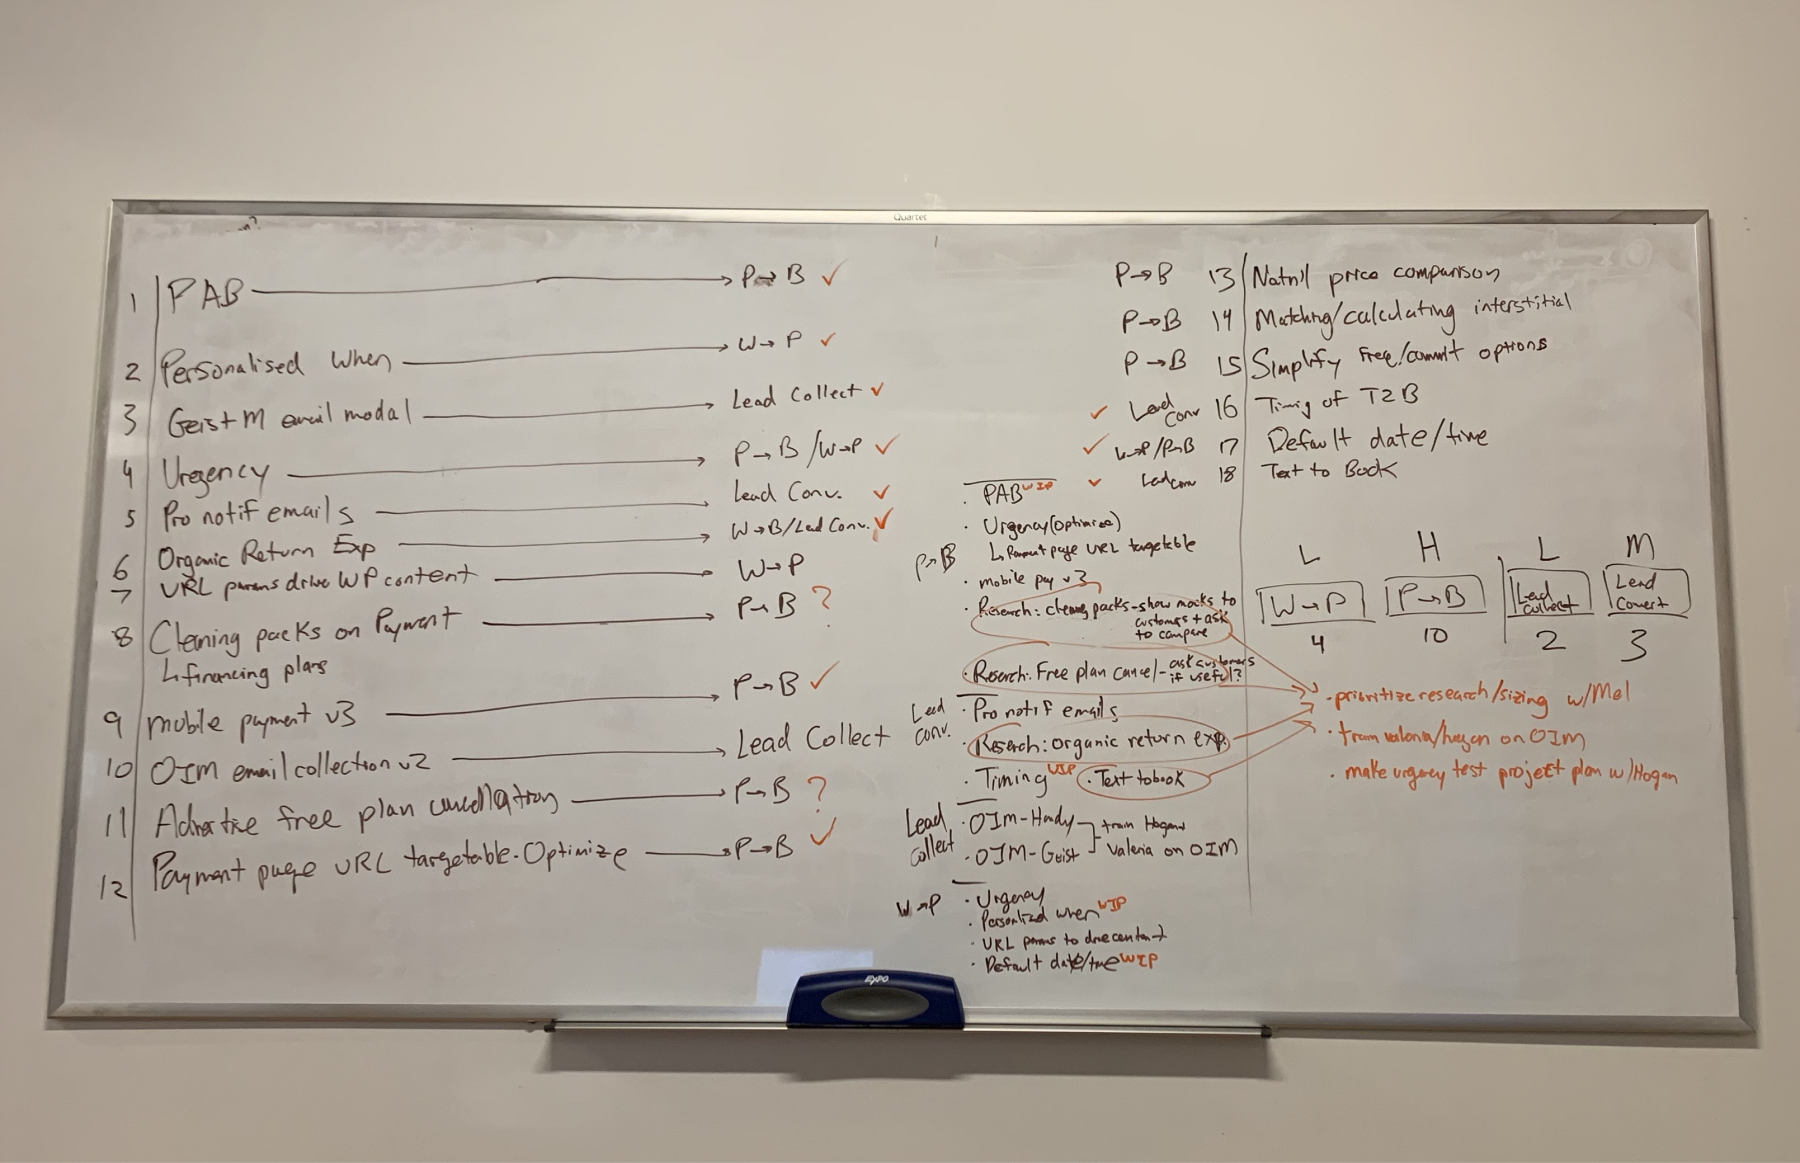 Quartet
1 PAB → P→B ✓
2 Personalised When → W→P ✓
3 Geist M email modal → Lead Collect ✓
4 Uregency → P→B/W→P ✓
5 Pro notif emails → Lead Conv. ✓
6 Organic Return Exp → W→B/Lead Conv. ✓
7 URL params drive WP content → W→P
8 Cleaning packs on Payment → P→B ?
↳ financing plans
9 mobile payment v3 → P→B ✓
10 OIM email collection v2 → Lead Collect
11 Advertise free plan cancellation → P→B ?
12 Payment page URL targetable-Optimize → P→B ✓
P→B 13 Natn'l price comparison
P→B 14 Matching/calculating interstitial
P→B 15 Simplify Free/commit options
✓ Lead Conv 16 Timig of T2B
✓ W→P/P→B 17 Default date/time
✓ Lead conv 18 Text to Book
P→B
· PAB WIP
· Urgency (Optimize)
↳ Payment page URL targetable
· mobile pay v3
· Research: cleaning packs - show mocks to
customers + ask
to compare
· Reserch: Free plan cancel - ask customers
if useful?
Lead
conv.
· Pro notif emails
· Reserch: organic return exp.
· Timing WIP · Text to book
Lead
collect
· OIM-Handy
· OIM-Geist
train Hogan
Valeria on OIM
W→P
· Urgency
· Personlized when WIP
· URL params to drive content
· Default date/time WIP
L H L M
W→P P→B Lead collect Lead Convert
4 10 2 3
· prioritize research/sizing w/Mel
· train valeria/hogan on OIM
· make urgency test project plan w/Hogan
EXPO